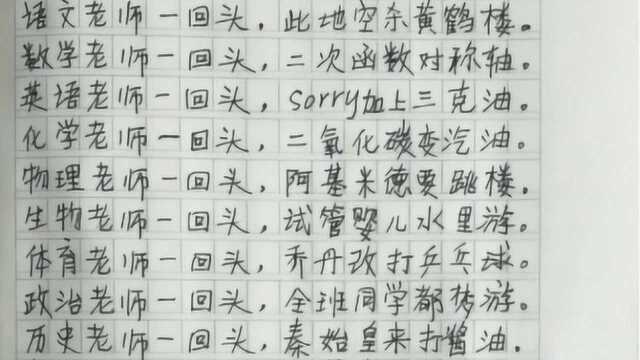 语文老师一回头，此地空杀黄鹤楼。
数学老师一回头，二次函数对称轴。
英语老师一回头，sorry加上三克油。
化学老师一回头，二氧化碳变汽油。
物理老师一回头，阿基米德要跳楼。
生物老师一回头，试管婴儿水里游。
体育老师一回头，乔丹改打乒乓球。
政治老师一回头，全班同学都梦游。
历史老师一回头，秦始皇来打酱油。